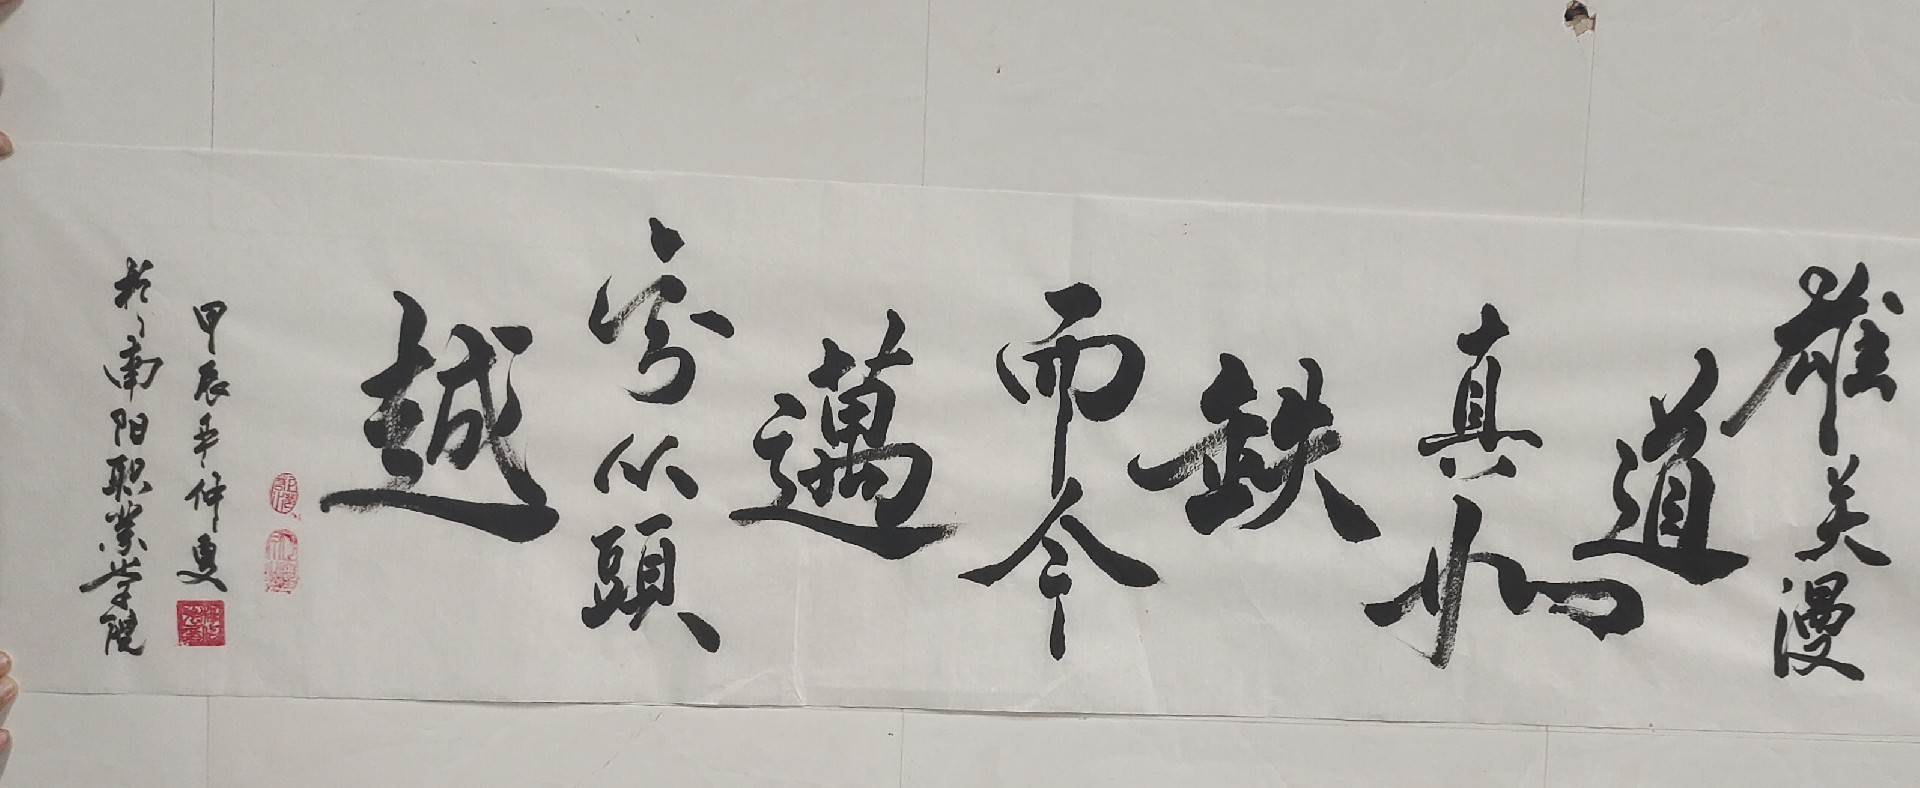 雄关漫
道
真如
鉄
而今
邁
步从頭
越
甲辰年仲夏
於南阳职業学院